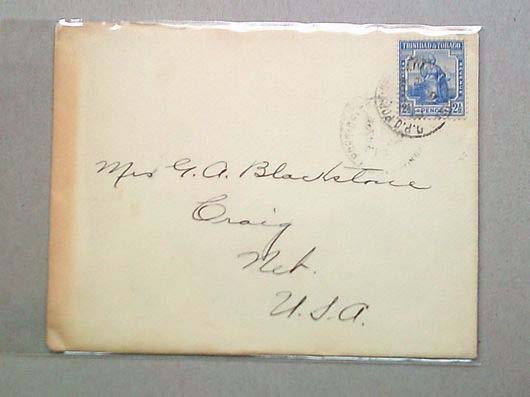 TRINIDAD & TOBAGO
2½ PENCE 2½
G.P.O. PORT
Mrs G. A. Blackstone
Craig
Neb.
U.S.A.